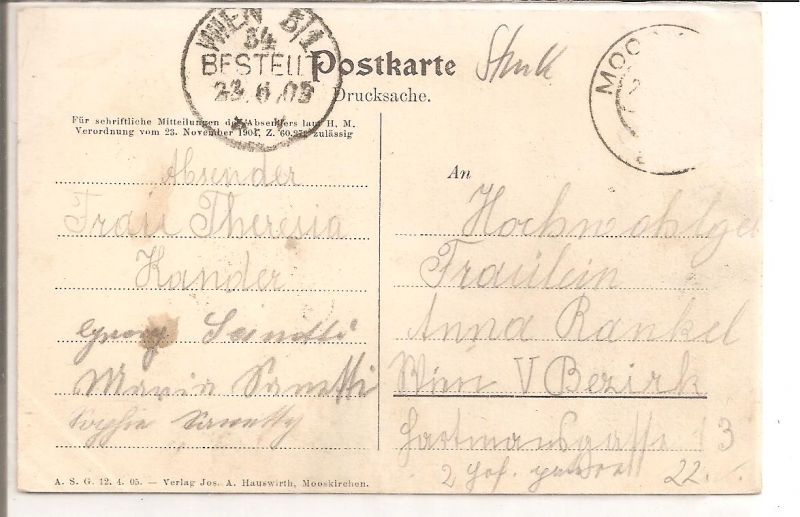 WIEN 5/1
54
BESTELLT
23.6.05
MOO
Postkarte
Drucksache.
Für schriftliche Mitteilungen des Absenders laut H. M.
Verordnung vom 23. November 1904, Z. 60.272 zulässig
Absender
Frau Theresia
Kander
Georg Sanetti
Maria Sanetti
Sophie Sanetty
An
Hochwohlge
Fraulein
Anna Rankel
Wien V Bezirk
Hartmansgasse 13
2
22.
A. S. G. 12. 4. 05. — Verlag Jos. A. Hauswirth, Mooskirchen.